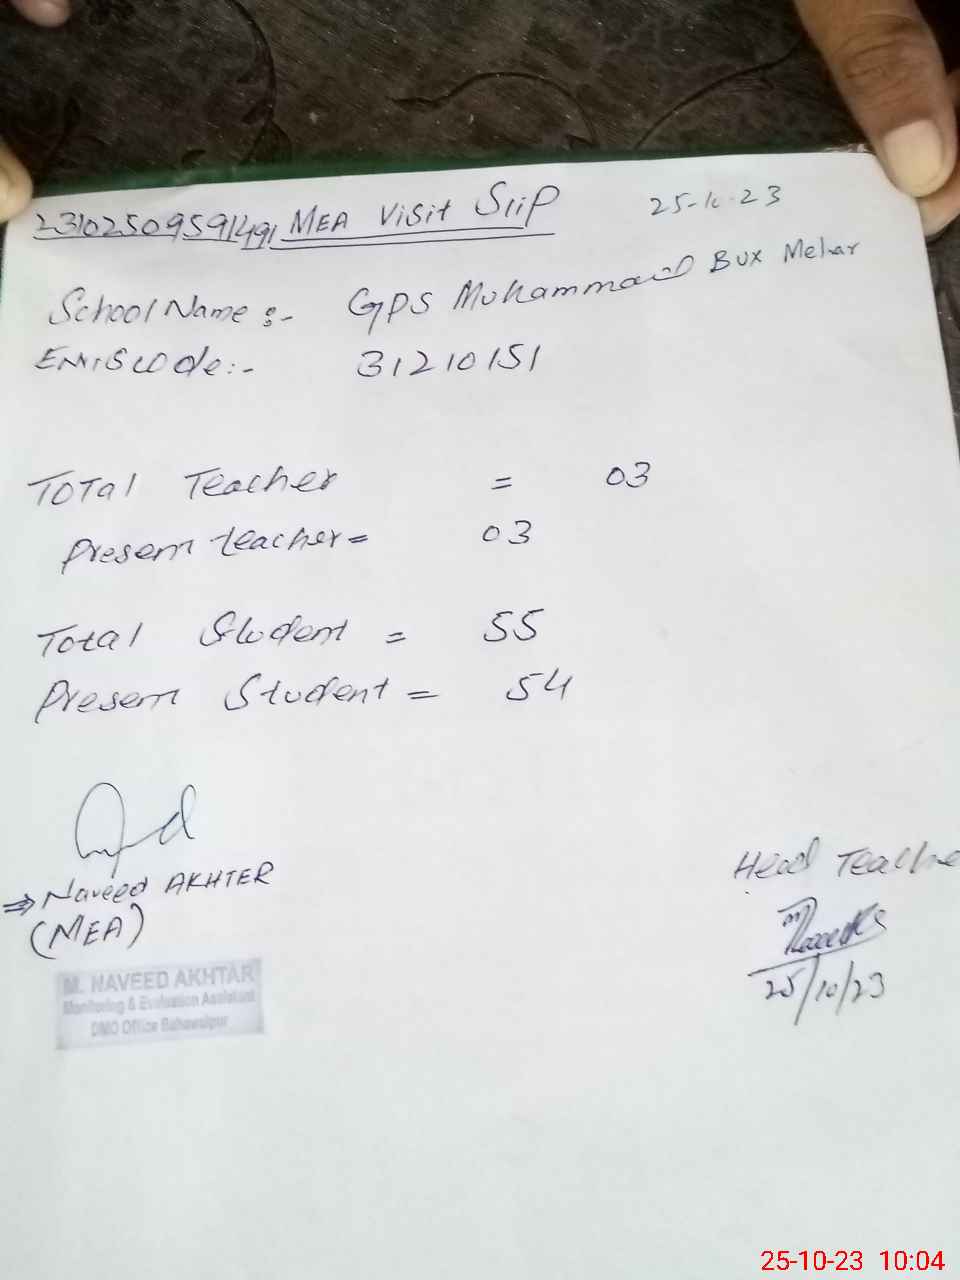 231025095911491 MEA Visit SiiP 25-10-23
School Name :- GPS Muhammad Bux Mehar
EMIS code :- 31210151
Total Teacher = 03
Present teacher = 03
Total Student = 55
Present Student = 54
⇒ Naveed AKHTER
(MEA)
M. NAVEED AKHTAR
Monitoring & Evaluation Assistant
DMO Office Bahawalpur
Head Teache
25/10/23
25-10-23 10:04